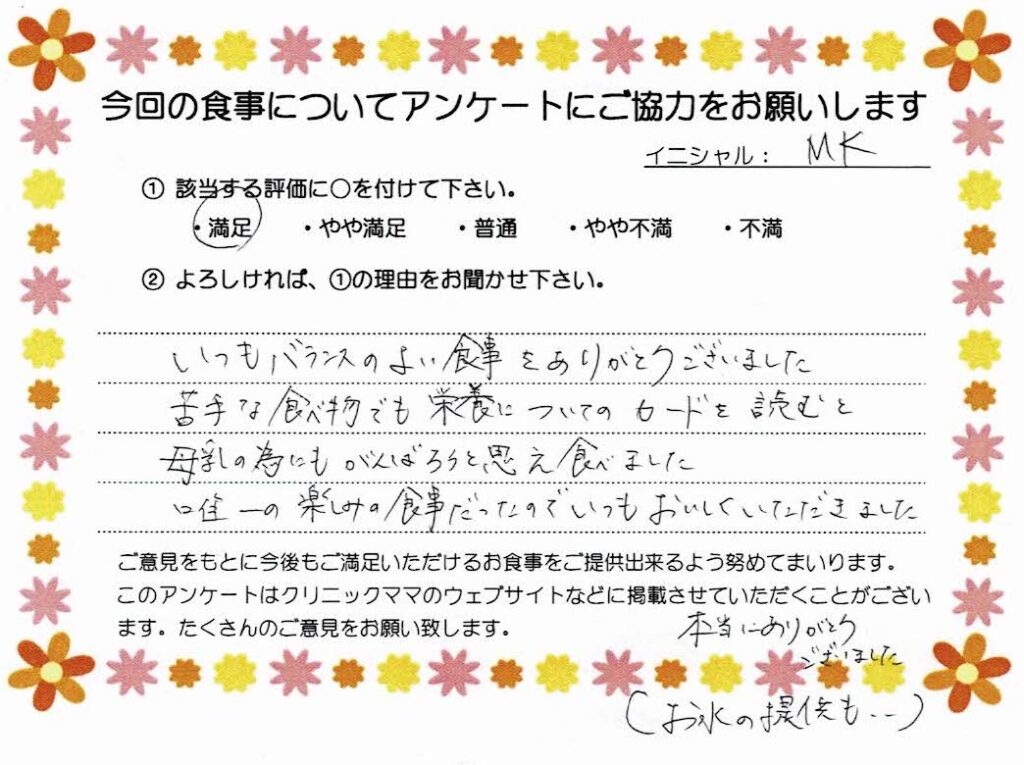 今回の食事についてアンケートにご協力をお願いします
イニシャル： MK
① 該当する評価に○を付けて下さい。
・満足 ・やや満足 ・普通 ・やや不満 ・不満
② よろしければ、①の理由をお聞かせ下さい。
いつもバランスのよい食事をありがとうございました
苦手な食べ物でも栄養についてのカードを読むと
母乳の為にもがんばろうと思え食べました
唯一の楽しみの食事だったのでいつもおいしくいただきました
ご意見をもとに今後もご満足いただけるお食事をご提供出来るよう努めてまいります。
このアンケートはクリニックママのウェブサイトなどに掲載させていただくことがござい
ます。たくさんのご意見をお願い致します。
本当にありがとう
ございました
(お水の提供も‥)